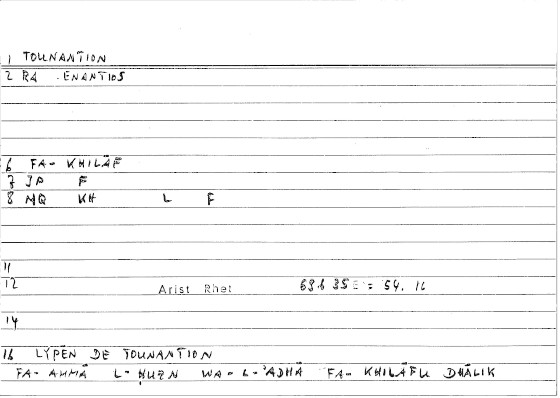 1 TOUNANTION
2 RA ENANTIOS
6 FA- KHILĀF
7 JP F
8 MQ KH L F
11
12 Arist Rhet 69b35 = 54. 16
14
16 LÝPĒN DE TOUNANTION
FA- AMMĀ L- ḤUZN WA- L- 'ADHĀ FA- KHILĀFU DHĀLIK